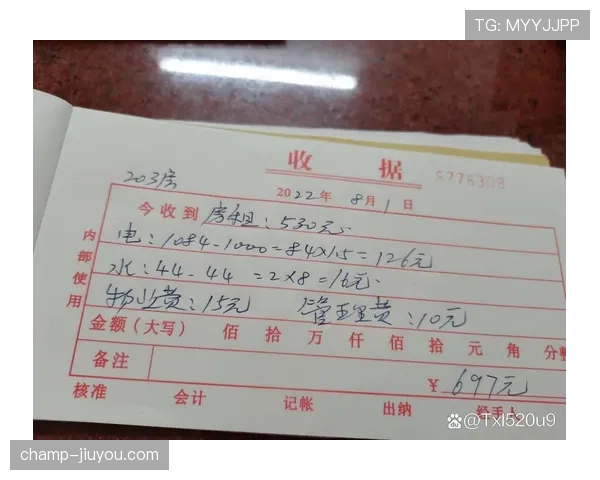 TG: MYYJJPP
收 据
6778308
203房
2022年 8月1日
今收到房租：530元
电：1084-1000=84×1.5=126元
水：44-44 =2×8=16元
物业费：15元 管理费：10元
内部使用
金额（大写） 佰 拾 万 仟 佰 拾 元 角 分整
备注
¥ 697元
核准 会计 记帐 出纳 经手人
@Txl520u9
champ-jiuyou.com